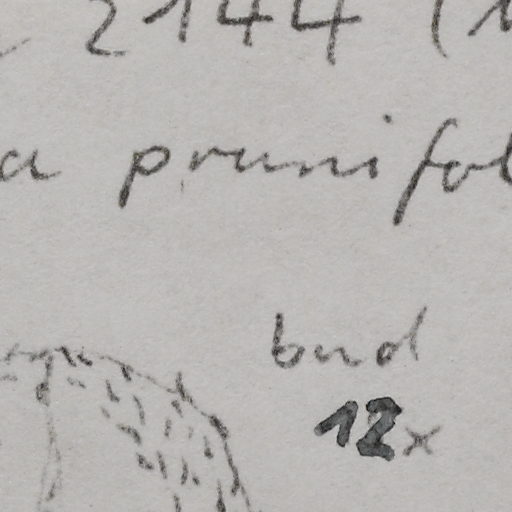 2144 (
a prunifol
bud
12x